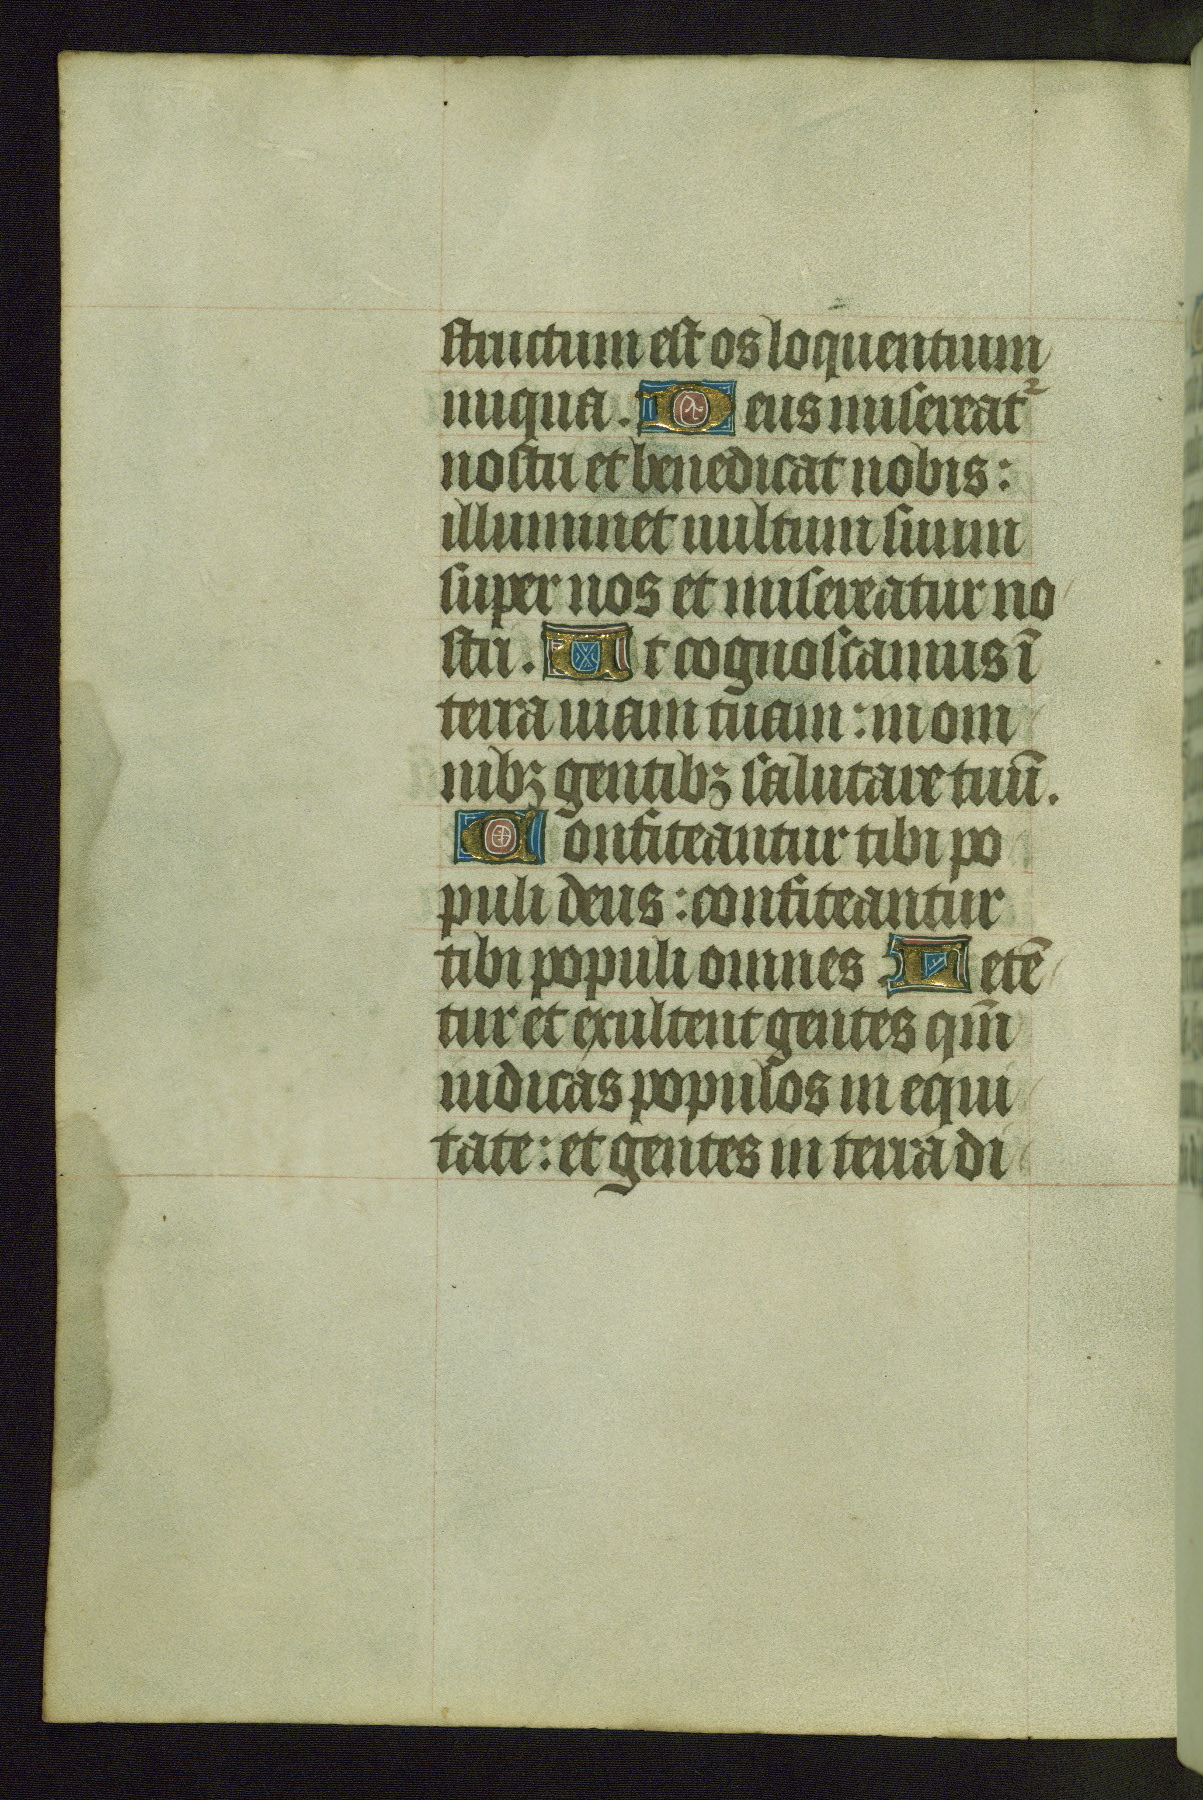 structum est os loquentium
iniqua. Deus misereat᷑
nostri et benedicat nobis:
illuminet uultum suum
super nos et misereatur no
stri. Ut cognoscamus ī
terra uiam tuam: in om
nibꝫ gentibꝫ salutare tuū.
Confiteantur tibi po
puli deus: confiteantur
tibi populi omnes. Letē
tur et exultent gentes qm̄
iudicas populos in equi
tate: et gentes in terra di